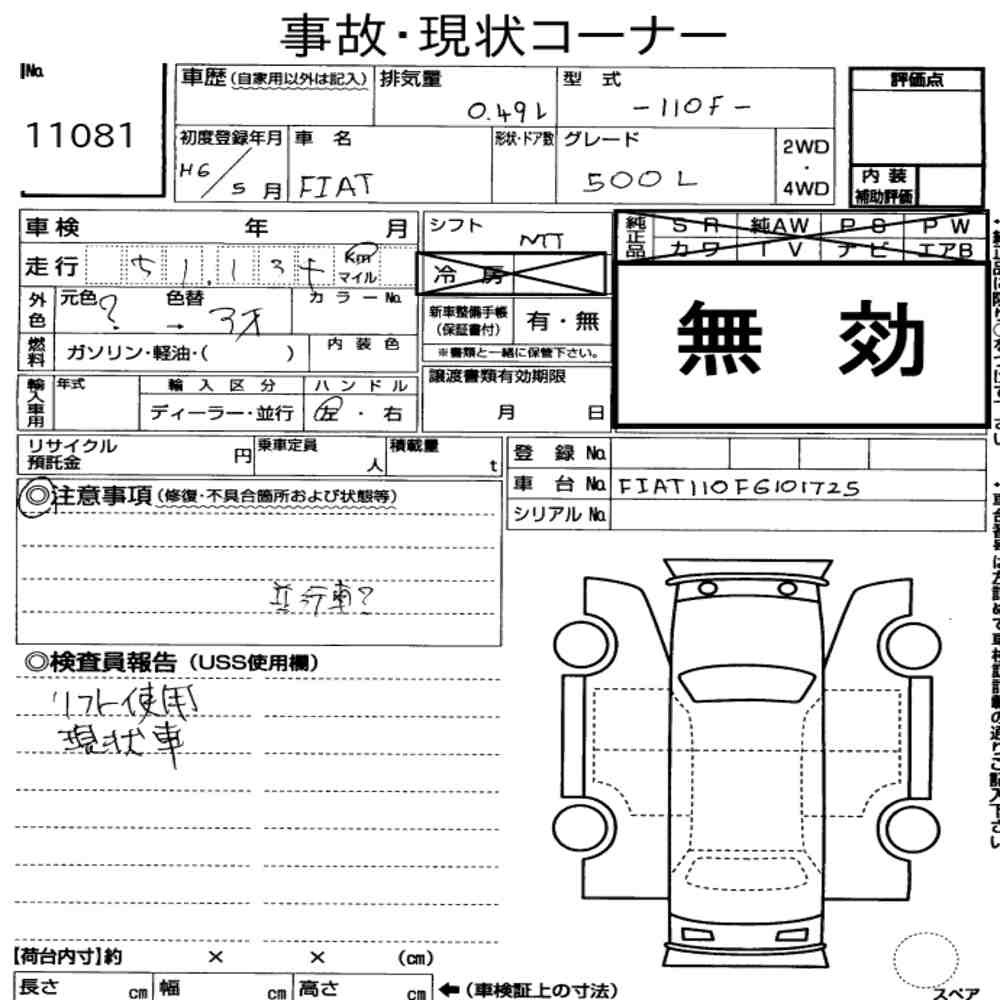 事故・現状コーナー
No.
11081
車歴(自家用以外は記入)
排気量
0.49L
型 式
-110F-
評価点
初度登録年月
H6/5月
車 名
FIAT
形状・ドア数
グレード
500L
2WD
・
4WD
内 装
補助評価
車検 年 月
シフト
MT
純正品
SR 純AW PS PW
カワ TV ナビ エアB
走行
51,13
Km
マイル
冷 房
無 効
外色
元色 ? 色替 → 3
カラーNo.
新車整備手帳
(保証書付)
有・無
※書類と一緒に保管下さい。
燃料
ガソリン・軽油・( )
内装色
輸入車用
年式
輸入区分
ディーラー・並行
ハンドル
左・右
譲渡書類有効期限
月 日
リサイクル
預託金
円
乗車定員
人
積載量
t
登 録 No.
車 台 No. FIAT110FG101725
シリアル No.
◎注意事項(修復・不具合箇所および状態等)
並行車?
◎検査員報告(USS使用欄)
リフト使用
現状車
【荷台内寸】約 × × (cm)
長さ cm 幅 cm 高さ cm ←(車検証上の寸法)
スペア